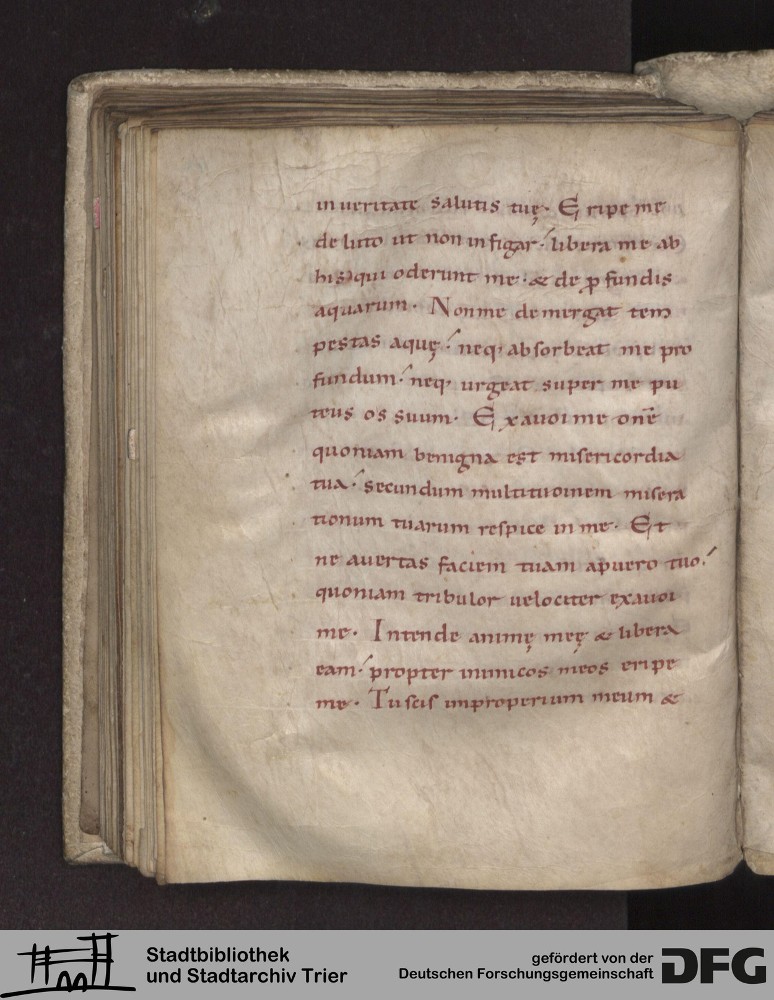 in ueritate salutis tuę· Eripe me
de luto ut non infigar· libera me ab
his qui oderunt me· & de ꝓfundis
aquarum· Non me demergat tem
pestas aquę· neq; absorbeat me pro
fundum· neq; urgeat super me pu
teus os suum· Exaudi me dnē
quoniam benigna est misericordia
tua· secundum multitudinem misera
tionum tuarum respice in me· Et
ne auertas faciem tuam apuero tuo·
quoniam tribulor uelociter exaudi
me· Intende animę meę & libera
eam· propter inimicos meos eripe
me· Tu scis improperium meum &
Stadtbibliothek
und Stadtarchiv Trier
gefördert von der
Deutschen Forschungsgemeinschaft
DFG